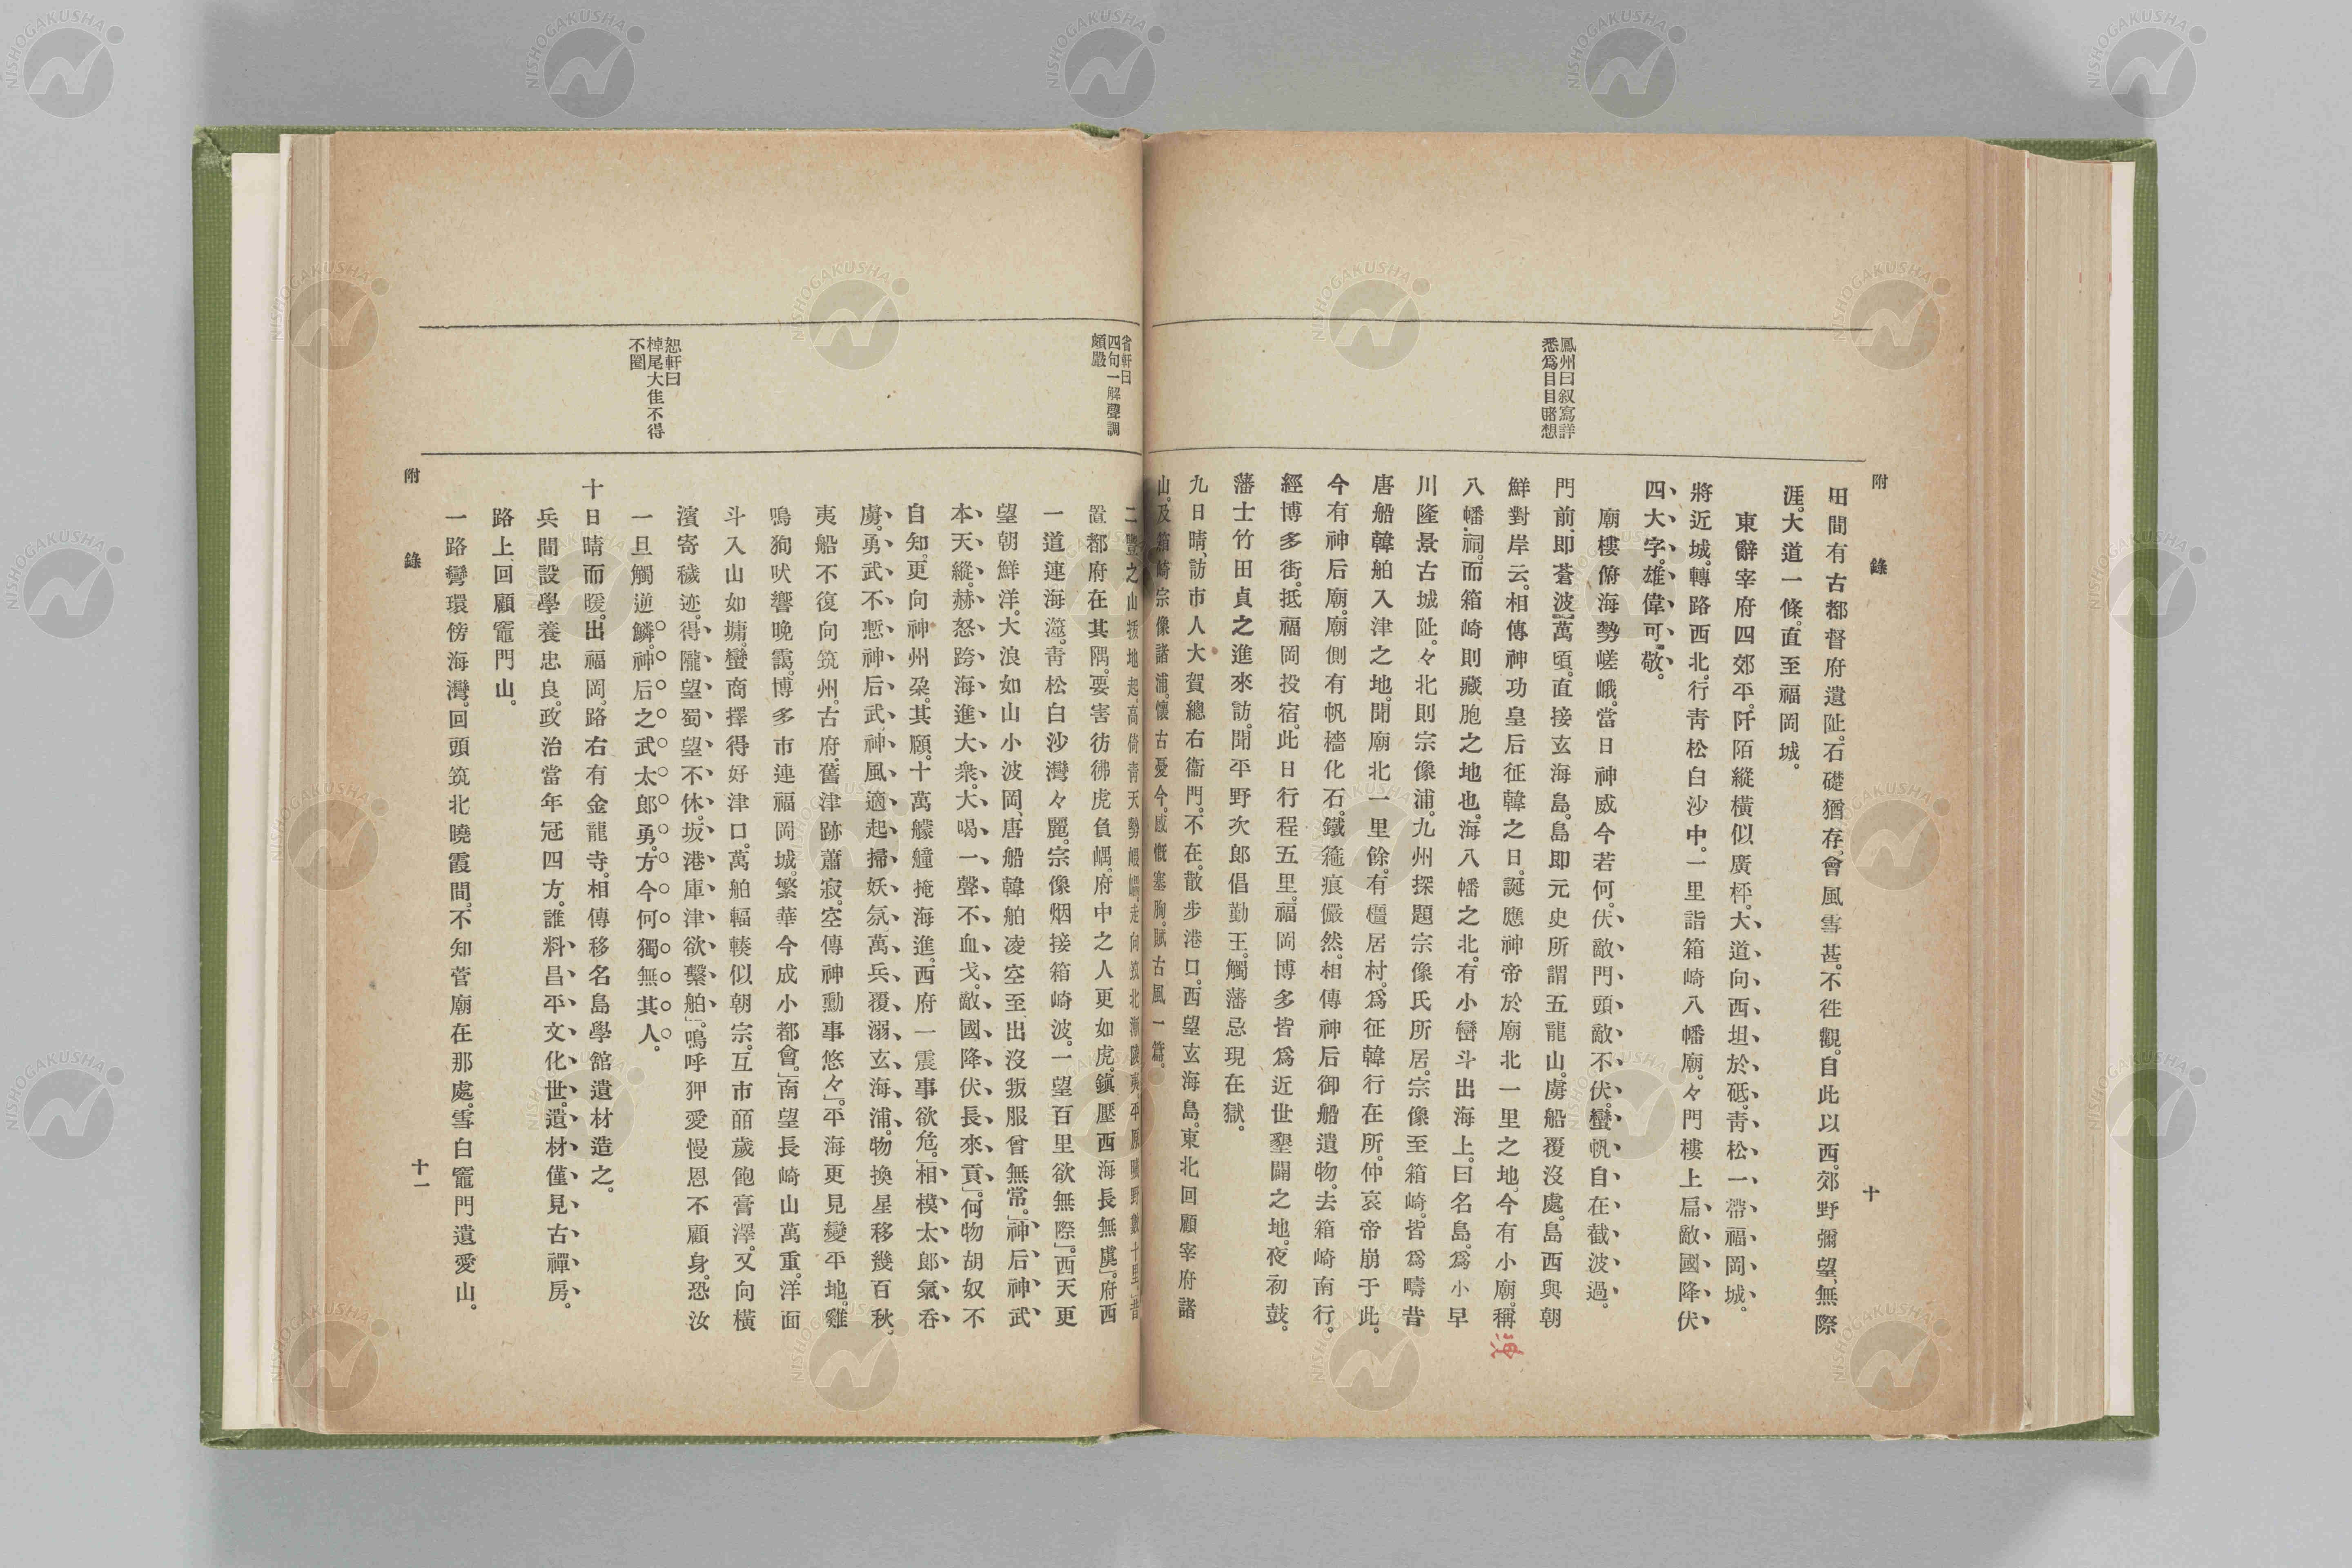 附錄
十
鳳州曰叙寫詳
悉爲目目睹想
田間有古都督府遺阯。石礎猶存。會風雪甚。不徃觀。自此以西。郊野彌望、無際
涯。大道一條。直至福岡城。
東辭宰府四郊平。阡陌縱橫似廣枰。大道向西坦於砥。靑松一帶福岡城。
將近城。轉路西北。行靑松白沙中。一里詣箱崎八幡廟。々門樓上扁敵國降伏
四大字。雄偉可敬。
廟樓俯海勢嵯峨。當日神威今若何。伏敵門頭敵不伏。蠻帆自在截波過。
門前、即蒼波萬頃。直接玄海島。島即元史所謂五龍山。虜船覆沒處。島西與朝
鮮對岸云。相傳神功皇后征韓之日。誕應神帝於廟北一里之地、今有小廟。稱
八幡祠。而箱崎則藏胞之地也。海八幡之北。有小巒斗出海上。曰名島。爲小早
川隆景古城阯。々北則宗像浦。九州探題宗像氏所居。宗像至箱崎。皆爲疇昔
唐船韓舶入津之地。聞廟北一里餘。有橿居村。爲征韓行在所。仲哀帝崩于此。
今有神后廟。廟側有帆檣化石。鐵箍痕儼然。相傳神后御船遺物。去箱崎南行。
經博多街。抵福岡投宿。此日行程五里。福岡博多皆爲近世墾闢之地。夜初鼓。
藩士竹田貞之進來訪。聞平野次郎倡勤王。觸藩忌現在獄。
九日晴、訪市人大賀總右衞門。不在。散步港口。西望玄海島。東北回顧宰府諸
山。及箱崎宗像諸浦。懷古憂今。感慨塞胸。賦古風一篇。
省軒曰
四句一解聲調
頗嚴
二豐之山拔地起。高倚靑天勢巉𡾋。走向筑北漸陵夷。平原曠野數十里。昔
置都府在其隅。要害彷彿虎負嵎。府中之人更如虎。鎭壓西海長無虞」。府西
一道連海澨。靑松白沙灣々麗。宗像烟接箱崎波。一望百里欲無際」。西天更
望朝鮮洋。大浪如山小波岡、唐船韓舶凌空至、出沒叛服曾無常」。神后神武
本天縱。赫怒跨海進大衆。大喝一聲不血戈。敵國降伏長來貢」。何物胡奴不
自知。更向神州朶其頤。十萬艨艟掩海進。西府一震事欲危」。相模太郎氣吞
虜。勇武不慙神后武。神風適起掃妖氛。萬兵覆溺玄海浦」。物換星移幾百秋。
夷船不復向筑州。古府舊津跡蕭寂。空傳神勳事悠々」。平海更見變平地。雞
鳴狗吠響晩靄。博多市連福岡城。繁華今成小都會」。南望長崎山萬重。洋面
斗入山如墉。蠻商擇得好津口。萬舶輻輳似朝宗。互市皕歲飽膏澤。又向橫
濱寄穢迹。得隴望蜀望不休。坂港庫津欲繫舶」。嗚呼狎愛慢恩不顧身。恐汝
一旦觸逆鱗。神后之武太郎勇。方今何獨無其人。
恕軒曰
棹尾大佳不得
不圈
十日晴而暖。出福岡、路右有金龍寺。相傳移名島學舘遺材造之。
兵間設學養忠良。政治當年冠四方。誰料昌平文化世。遺材僅見古禪房。
路上回顧竈門山。
一路彎環傍海灣。回頭筑北曉霞間。不知菅廟在那處。雪白竈門遺愛山。
附錄
十一